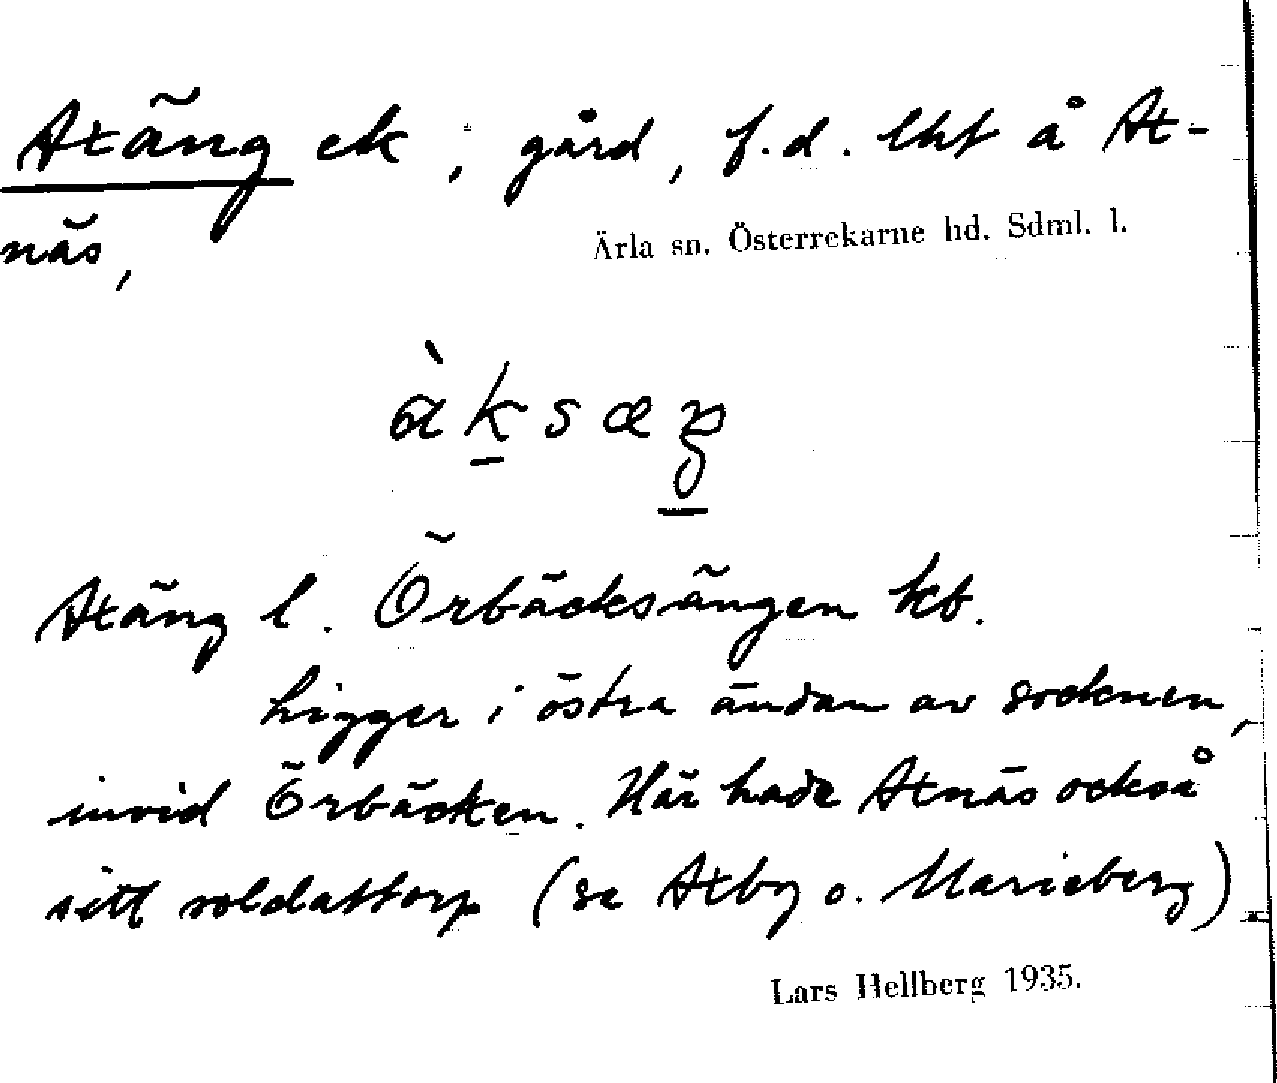 Axäng ek, gård, f.d. lht å Ax-
näs,
Ärla sn. Österrekarne hd. Sdml. l.
Axäng l. Örbäcksängen kb.
Ligger i östra ändan av socknen,
invid Örbäcken. Här hade Axnäs också
sitt soldattorp (se Axby o. Marieberg)
Lars Hellberg 1935.